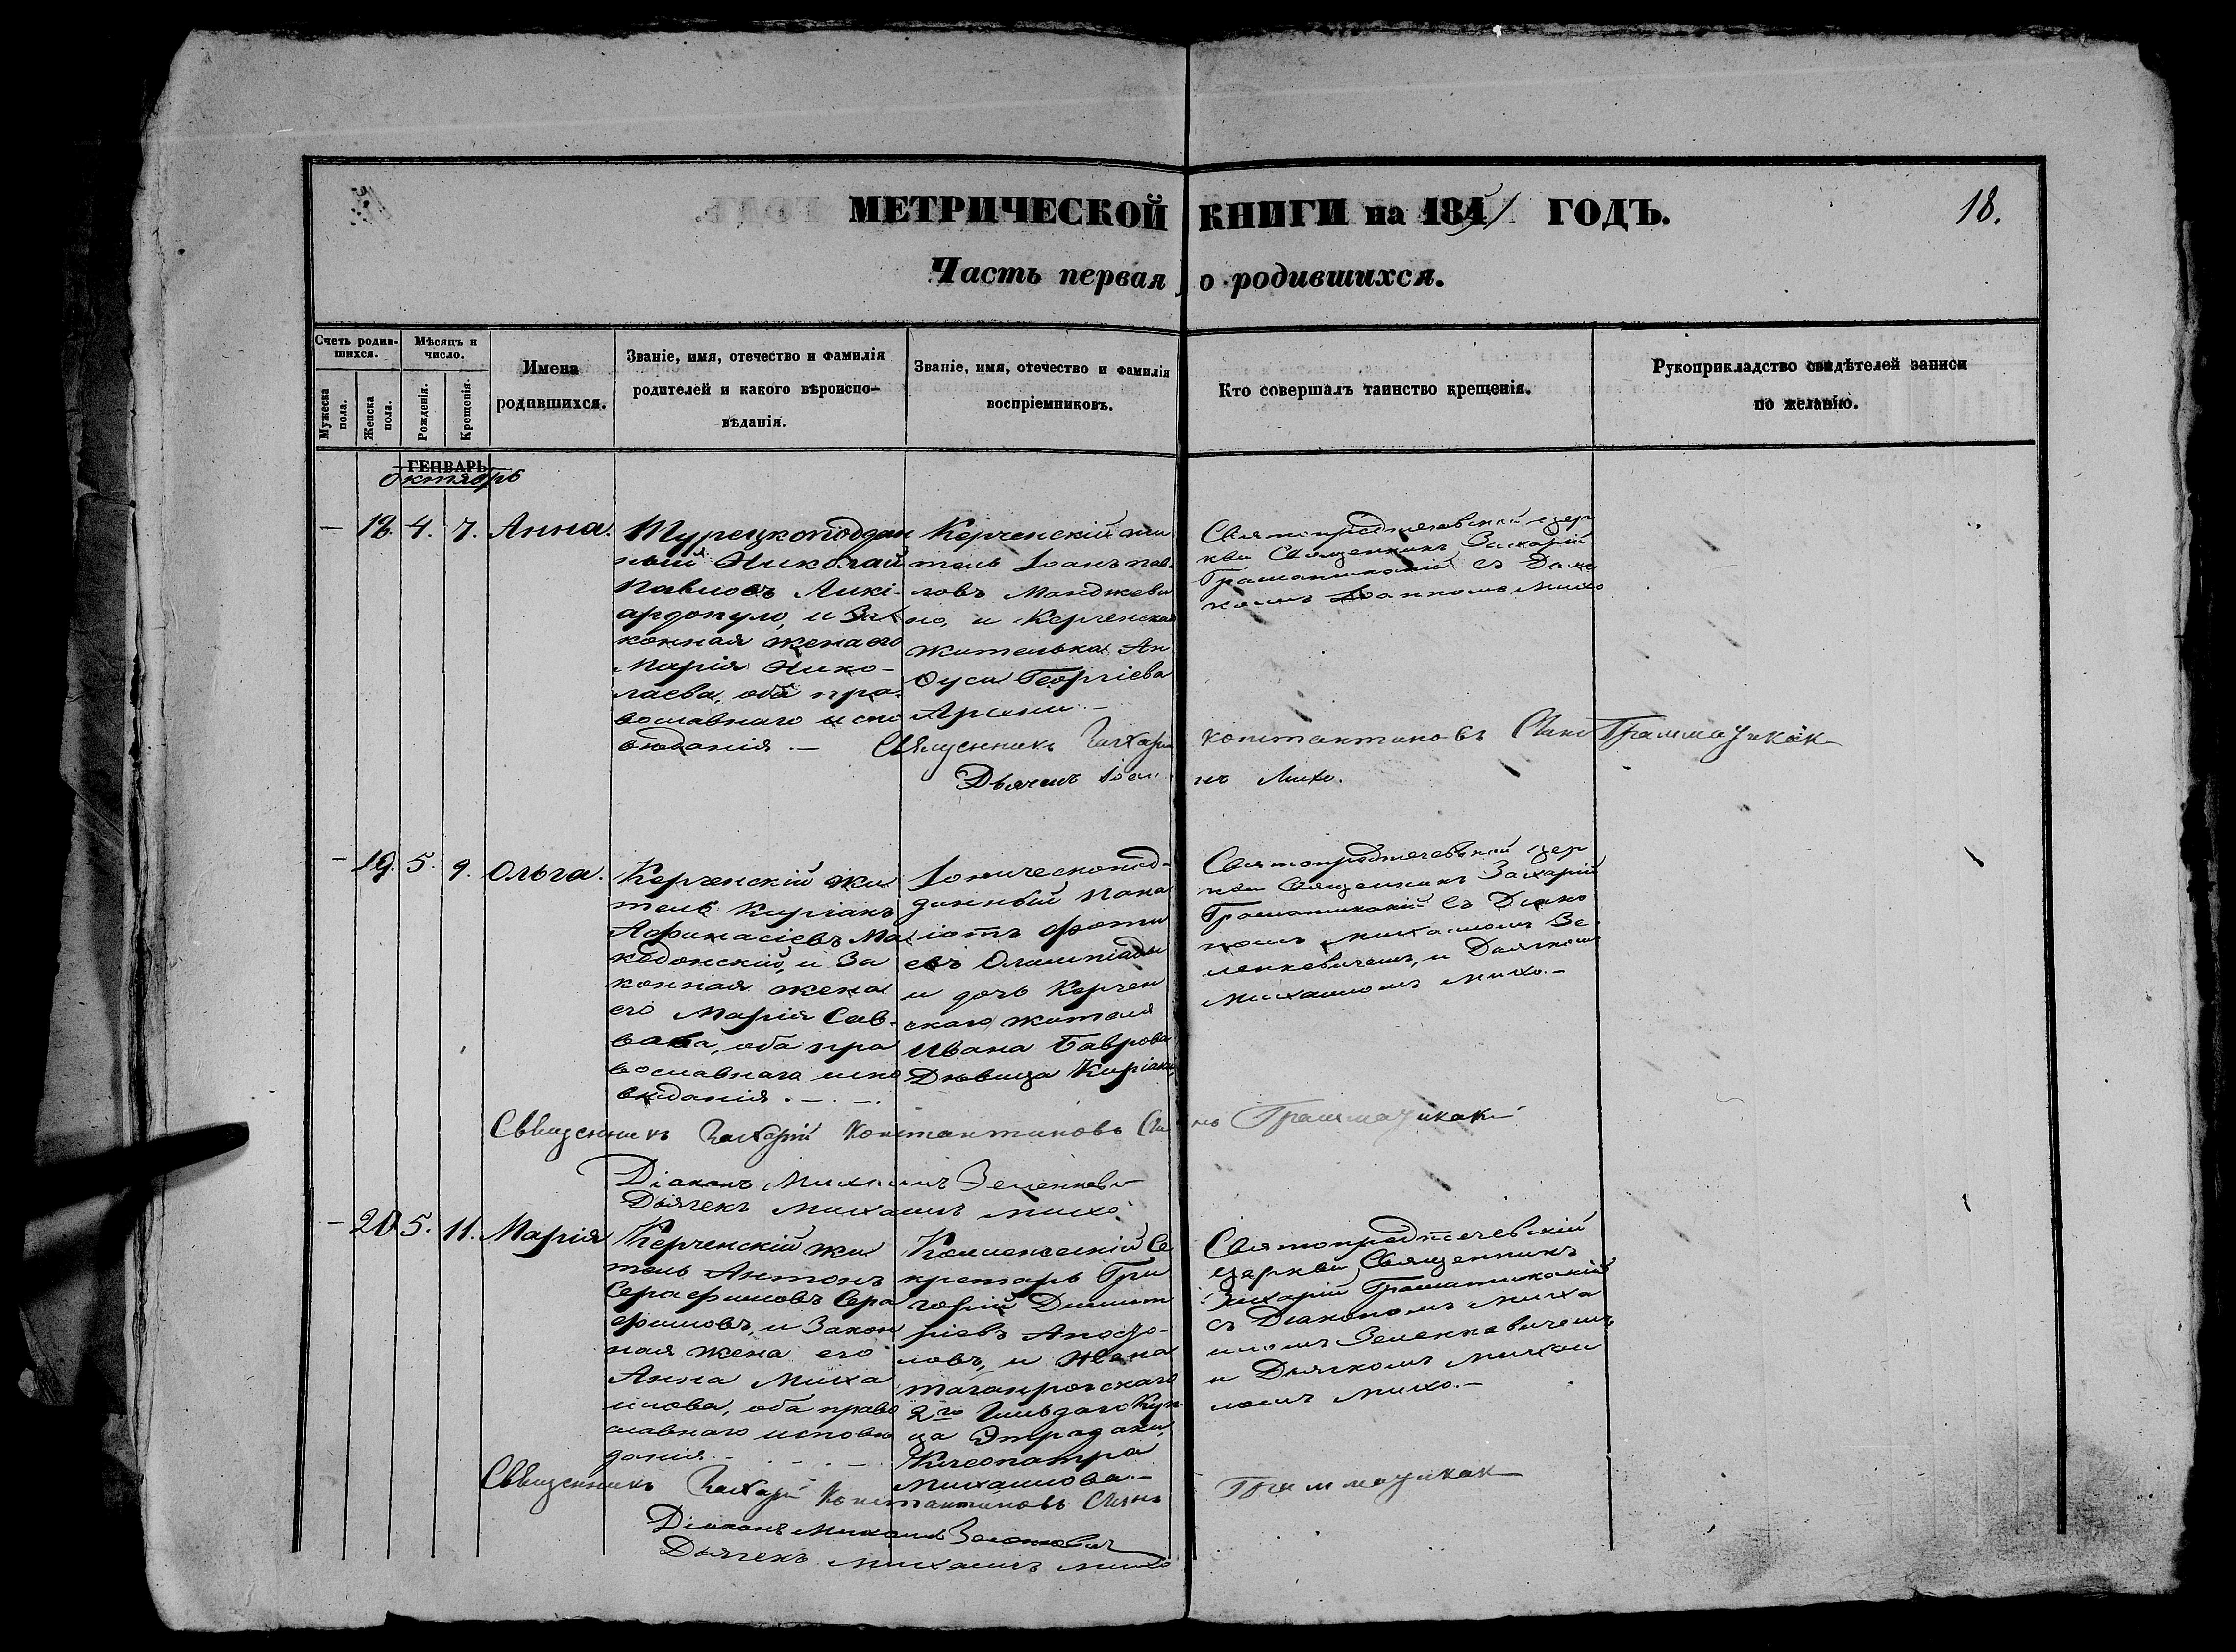 МЕТРИЧЕСКОЙ КНИГИ на 1841 ГОДЪ.
18.
Часть первая, о родившихся.
Счетъ родившихся.
Мужеска пола.
Женска пола.
Мѣсяцъ и число.
Рожденія.
Крещенія.
Имена родившихся.
Званіе, имя, отечество и фамилія
родителей и какого вѣроиспо-
вѣданія.
Званіе, имя, отечество и фамилія
воспріемниковъ.
Кто совершалъ таинство крещенія.
Рукоприкладство свидѣтелей записи
по желанію.
ГЕНВАРЬ
Октябрь
— 18. 4. 7. Анна.
Турецкоподдан
ный Николай
Павловъ Ликі-
ардопуло, и За
конная жена его
Марія Нико-
лаева, оба пра-
вославнаго испо
вѣданія. —
Керченскій жи
тель Іоанъ Пав-
ловъ Манджеви
но, и Керченская
жителька Ан
Георгіева
Святопредтечевской цер
кви Священникъ Захарій
Граматикакій съ Дьяч
комъ Іоанномъ Михо
Священникъ Захарій Константиновъ Сынъ Грамматикаки
Дьячекъ Іоаннъ Михо.
— 19. 5. 9. Ольга.
Керченскій жи
тель Киріакъ
Афанасіевъ Ма
кедонскій, и За
конная жена
его Марія Сав-
вава, оба пра
вославнаго испо
вѣданія. — . —
Іоническопод-
данный Пана
іотъ Фоти
евъ Олимпіади
и дочь Керчен
скаго жителя
Ивана Баврова
Дѣвица Киріаки,
Святопредтечевской цер
кви Священникъ Захарій
Граматикакій съ Діако
номъ Михаиломъ Зе
ленкевичемъ, и Дьячкомъ
Михаиломъ Михо. —
Священникъ Захарій Константиновъ Сынъ Грамматикаки
Діаконъ Михаилъ Зеленкевич
Дьячекъ Михаилъ Михо
— 20 5. 11. Марія
Керченскій жи
тель Антонъ
Серафимовъ Сера
фимовъ, и Закон
ная жена его
Анна Миха
илова, оба право
славнаго исповѣ
данія. —
Се
кретарь Гри
горій Димит
ріевъ Апосто-
ловъ, и Жена
таганрогскаго
2й Гильдіи Куп-
ца
Клеопатра
Михаилова. —
Святопредтечевскій
церкви Священникъ
Захарій Граматикакій
съ Діакономъ Миха
иломъ Зеленкевичемъ
и Дьячкомъ Михаи
ломъ Михо. —
Священникъ Захарій Константиновъ Сынъ Грамматикаки
Діаконъ Михаилъ Зеленкевич
Дьячекъ Михаилъ Михо